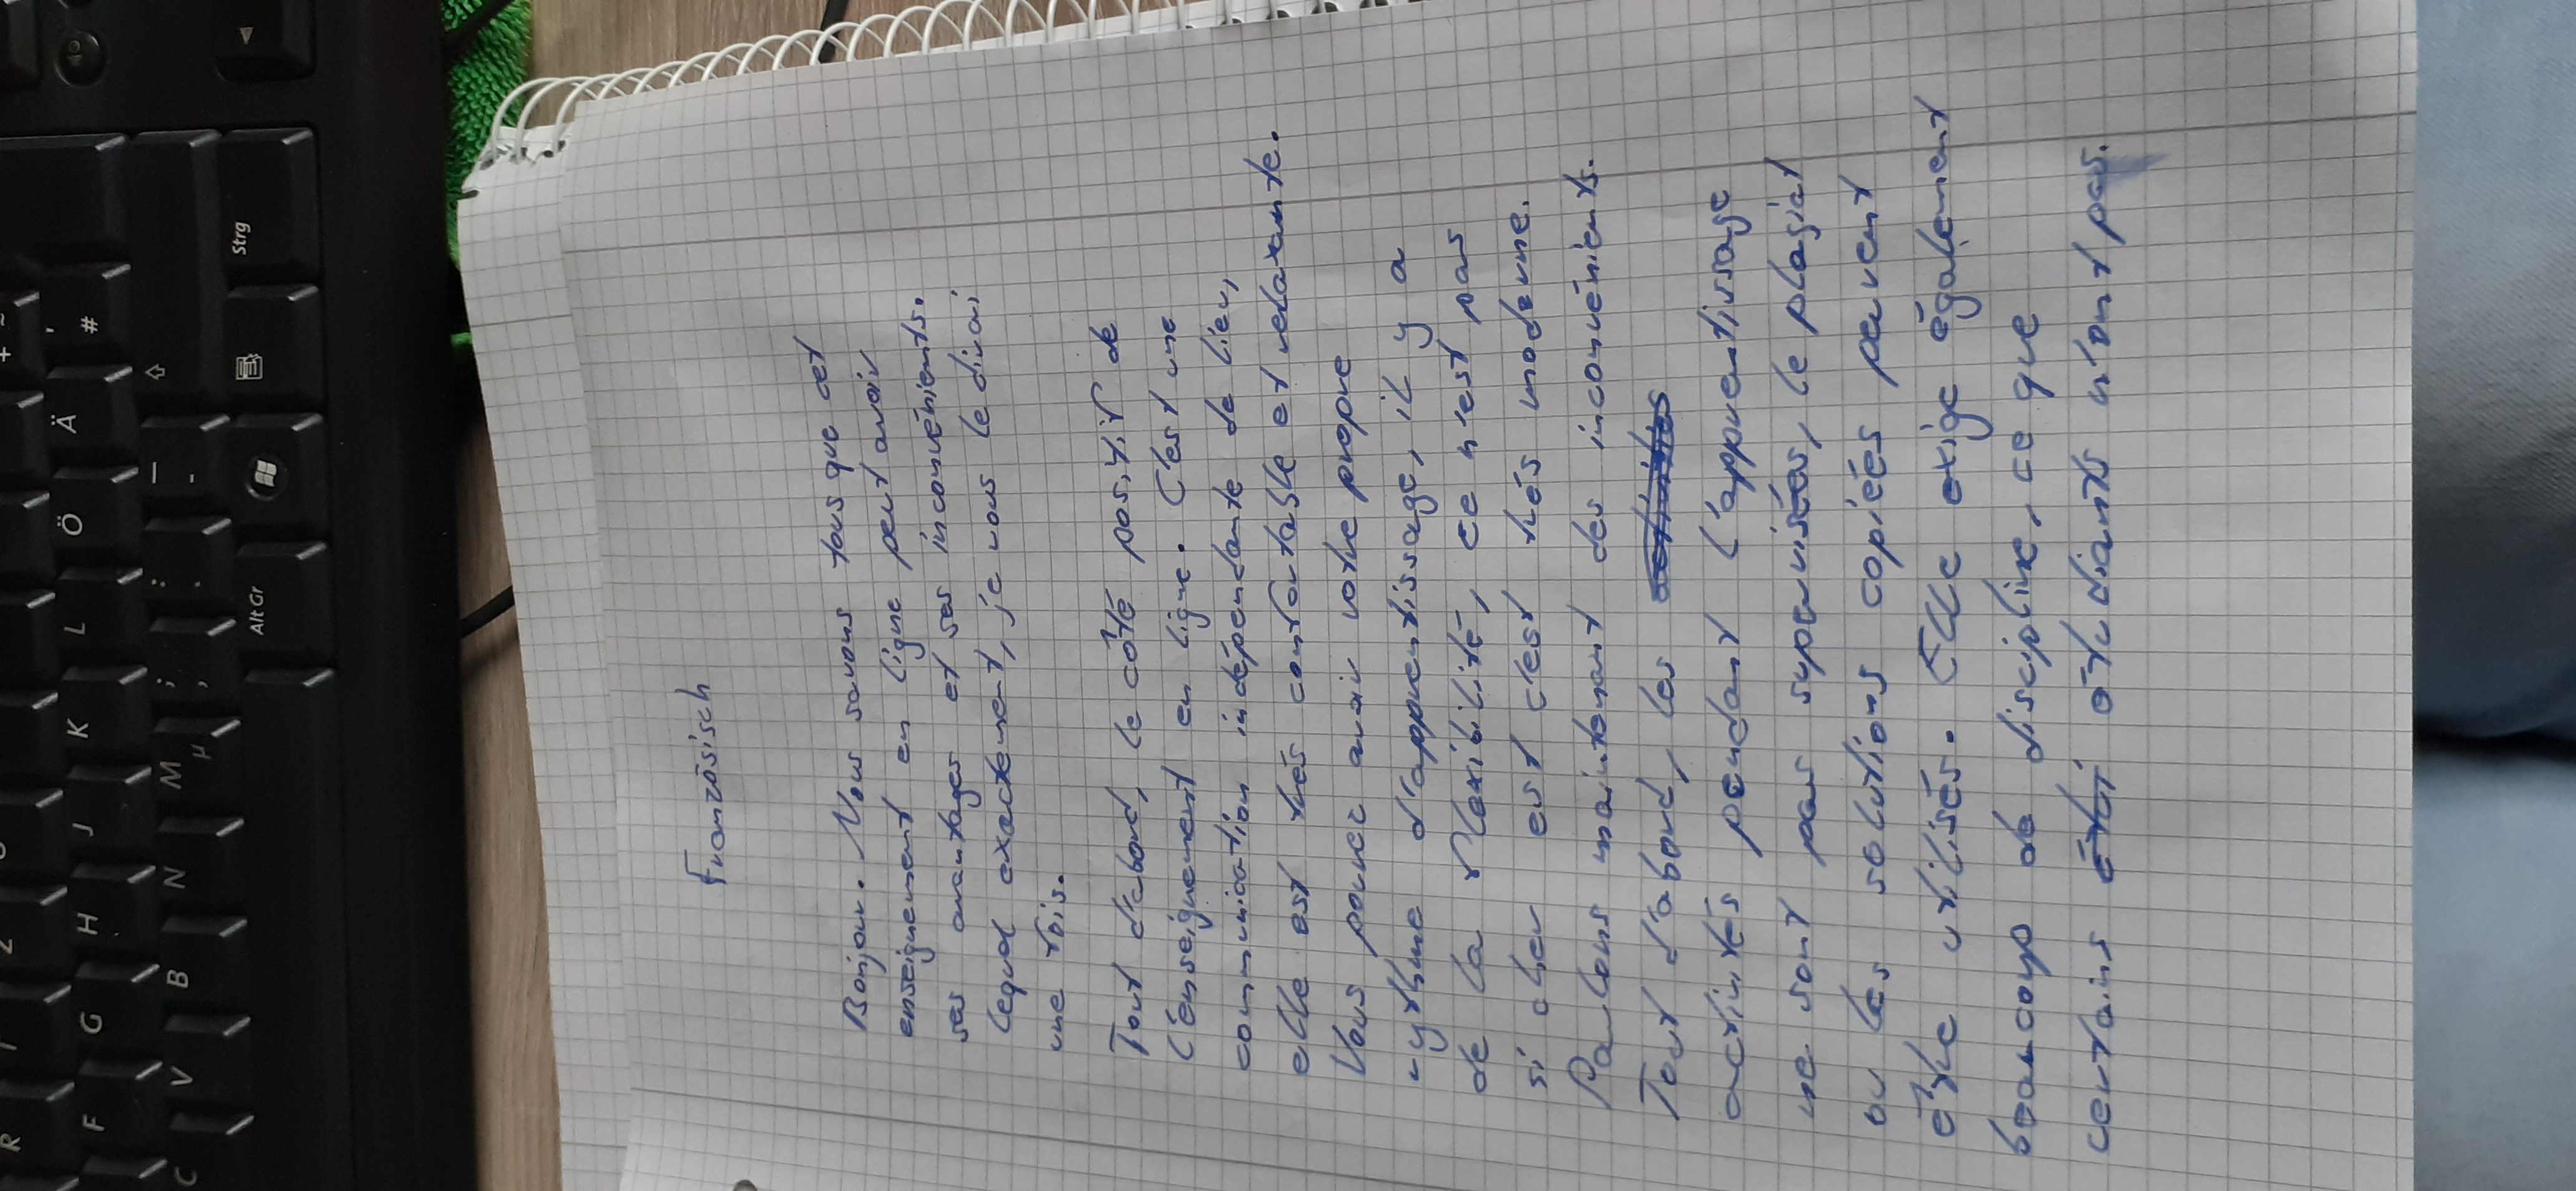 Französisch
Bonjour. Nous savons tous que cet
enseignement en ligne peut avoir
ses avantages et ses inconvénients.
Lequel exactement, je vous le dirai
une fois.
Tout d'abord, le côté positif de
l'enseignement en ligne. C'est une
communication indépendante de lieu,
elle est très confortable et relaxante.
Vous pouvez avoir votre propre
rythme d'apprentissage, il y a
de la flexibilité, ce n'est pas
si cher et c'est très moderne.
Parlons maintenant des inconvénients.
Tout d'abord, les
activités pendant l'apprentissage
ne sont pas supervisées, le plagiat
ou les solutions copiées peuvent
être utilisés. Elle exige également
beaucoup de discipline, ce que
certains étudiants n'ont pas.
Strg
Alt Gr
Ä
Ö
L
K
J
H
G
F
R
M
µ
N
B
V
C
#
'
+
~
;
,
:
.
_
-